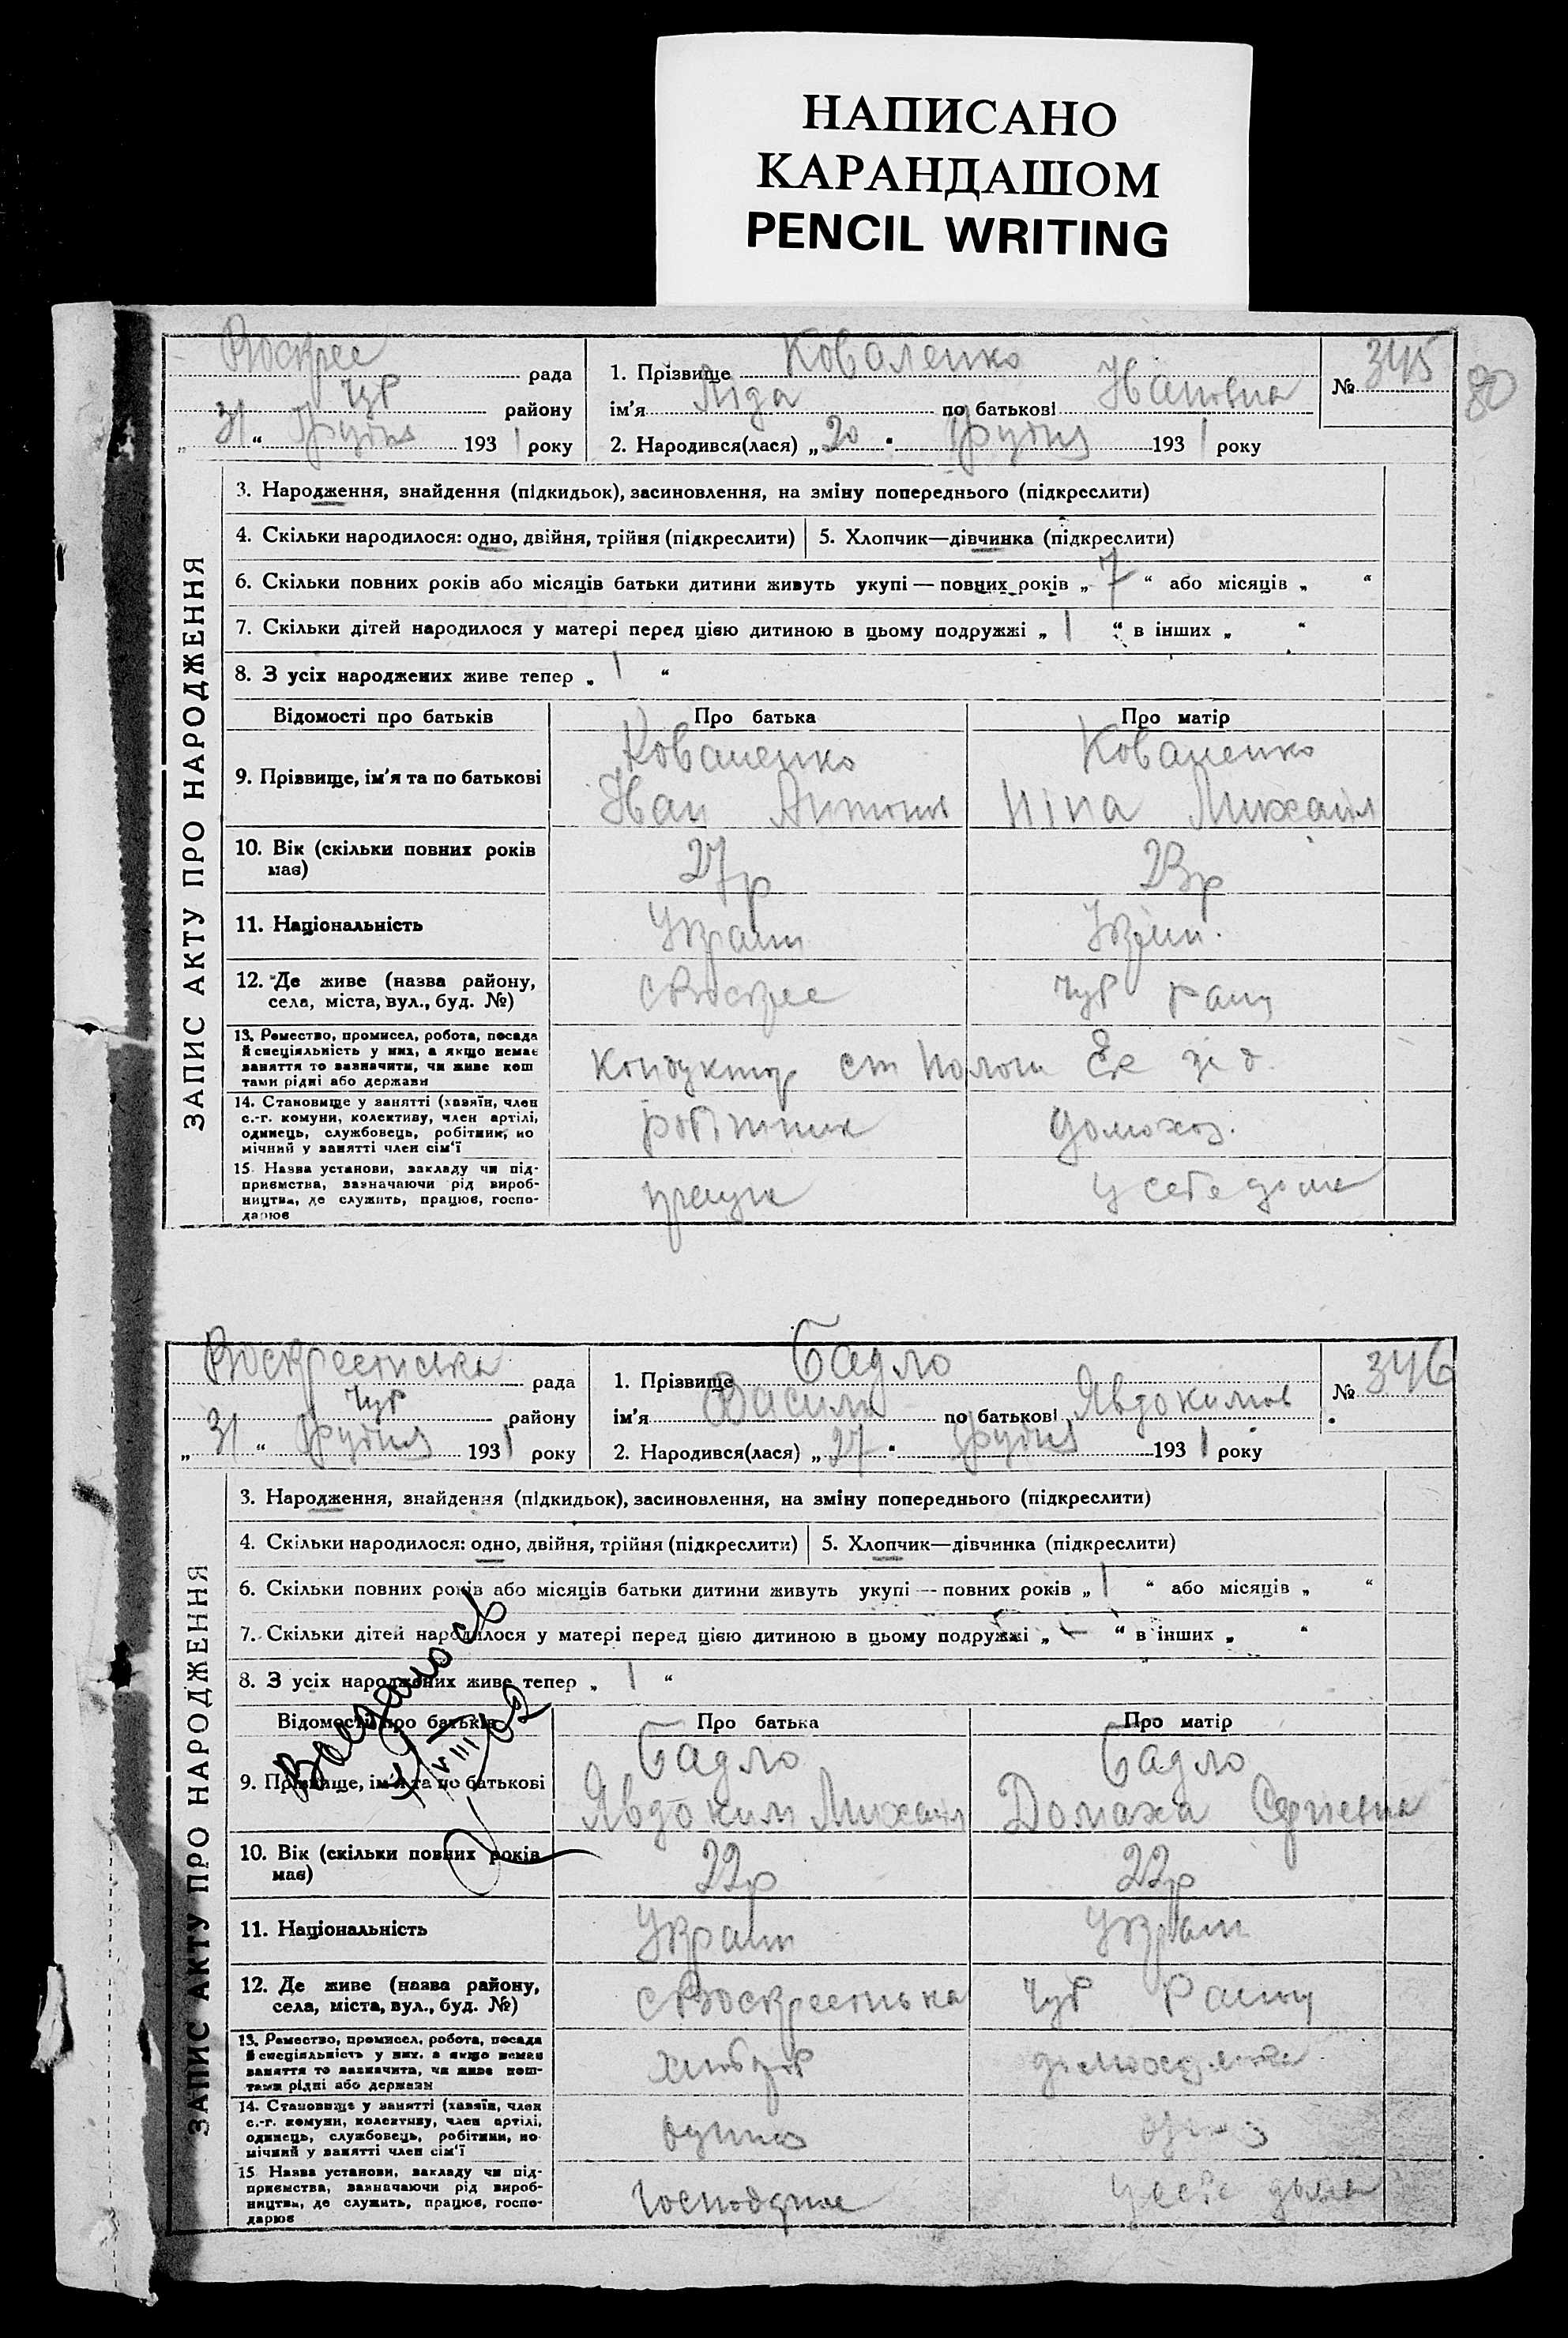 НАПИСАНО
КАРАНДАШОМ
PENCIL WRITING
80
Воскрес рада
Чуб району
„ 31 “ Грудня 1931 року
1. Прізвище Коваленко
ім’я Ліда по батькові Івановна
2. Народився(лася) „ 20 “ Грудня 1931 року
№ 345
ЗАПИС АКТУ ПРО НАРОДЖЕННЯ
3. Народження, знайдення (підкидьок), засиновлення, на зміну попереднього (підкреслити)
4. Скільки народилося: одно, двійня, трійня (підкреслити) 5. Хлопчик—дівчинка (підкреслити)
6. Скільки повних років або місяців батьки дитини живуть укупі — повних років „ 7 “ або місяців „ “
7. Скільки дітей народилося у матері перед цією дитиною в цьому подружжі „ 1 “ в інших „ “
8. З усіх народжених живе тепер „ 1 “
Відомості про батьків Про батька Про матір
9. Прізвище, ім’я та по батькові
Коваленко
Іван Антонов
Коваленко
Ніна Михаил
10. Вік (скільки повних років
має)
27р 23р
11. Національність
Украин Украин.
12. Де живе (назва району,
села, міста, вул., буд. №)
с Воскрес Чуб
13. Ремество, промисел, робота, посада
й спеціяльність у них, а якщо немає
заняття то зазначити, чи живе кош
тами рідні або держави
Кондуктор ст Пологи Ек
14. Становище у занятті (хазяїн, член
с.-г. комуни, колективу, член артілі,
одинець, службовець, робітник, по
мічний у занятті член сім’ї
робітник домохоз.
15. Назва установи, закладу чи під-
приємства, зазначаючи рід вироб-
ництва, де служить, працює, госпо-
дарює
працує у себе дома
Воскресенська рада
Чуб району
„ 31 “ Грудня 1931 року
1. Прізвище Бадло
ім’я Василь по батькові Явдокимов
2. Народився(лася) „ 27 “ Грудня 1931 року
№ 346
ЗАПИС АКТУ ПРО НАРОДЖЕННЯ
3. Народження, знайдення (підкидьок), засиновлення, на зміну попереднього (підкреслити)
4. Скільки народилося: одно, двійня, трійня (підкреслити) 5. Хлопчик—дівчинка (підкреслити)
6. Скільки повних років або місяців батьки дитини живуть укупі — повних років „ 1 “ або місяців „ “
7. Скільки дітей народилося у матері перед цією дитиною в цьому подружжі „ – “ в інших „ “
8. З усіх народжених живе тепер „ 1 “
Відомості про батьків Про батька Про матір
9. Прізвище, ім’я та по батькові
Бадло
Явдоким Михаил
Бадло
Домаха Сергіевна
10. Вік (скільки повних років
має)
22р 22р
11. Національність
Украин Украин
12. Де живе (назва району,
села, міста, вул., буд. №)
с Воскресенька Чуб
13. Ремество, промисел, робота, посада
й спеціяльність у них, а якщо немає
заняття то зазначити, чи живе кош-
тами рідні або держави
хлібороб
14. Становище у занятті (хазяїн, член
с.-г. комуни, колективу, член артілі,
одинець, службовець, робітник, по
мічний у занятті член сім’ї
15 Назва установи, закладу чи під-
приємства, зазначаючи рід вироб-
ництва, де служить, працює, госпо-
дарює
у себе дома